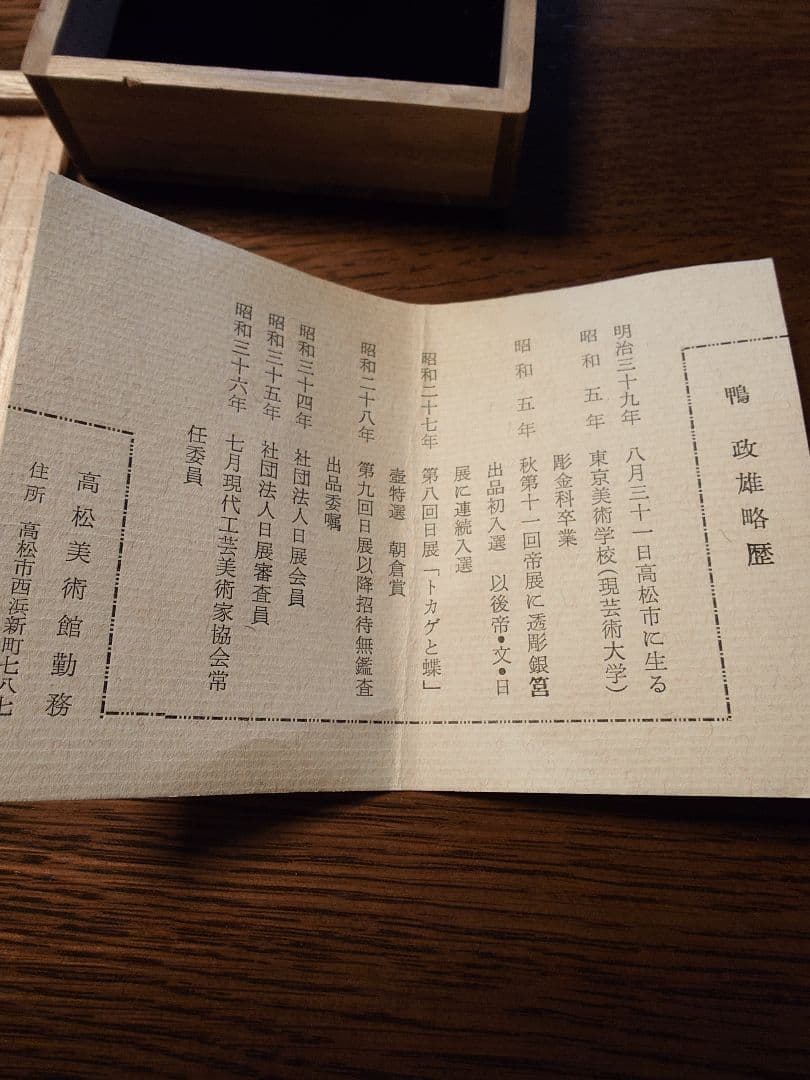 鴨政雄略歴
明治三十九年 八月三十一日高松市に生る
昭和五年 東京美術学校(現芸術大学)
彫金科卒業
昭和五年 秋第十一回帝展に透彫銀筥
出品初入選 以後帝・文・日
展に連続入選
昭和二十七年 第八回日展「トカゲと蝶」
壺特選 朝倉賞
昭和二十八年 第九回日展以降招待無鑑査
出品委嘱
昭和三十四年 社団法人日展会員
昭和三十五年 社団法人日展審査員
昭和三十六年 七月現代工芸美術家協会常
任委員
高松美術館勤務
住所 高松市西浜新町七八七